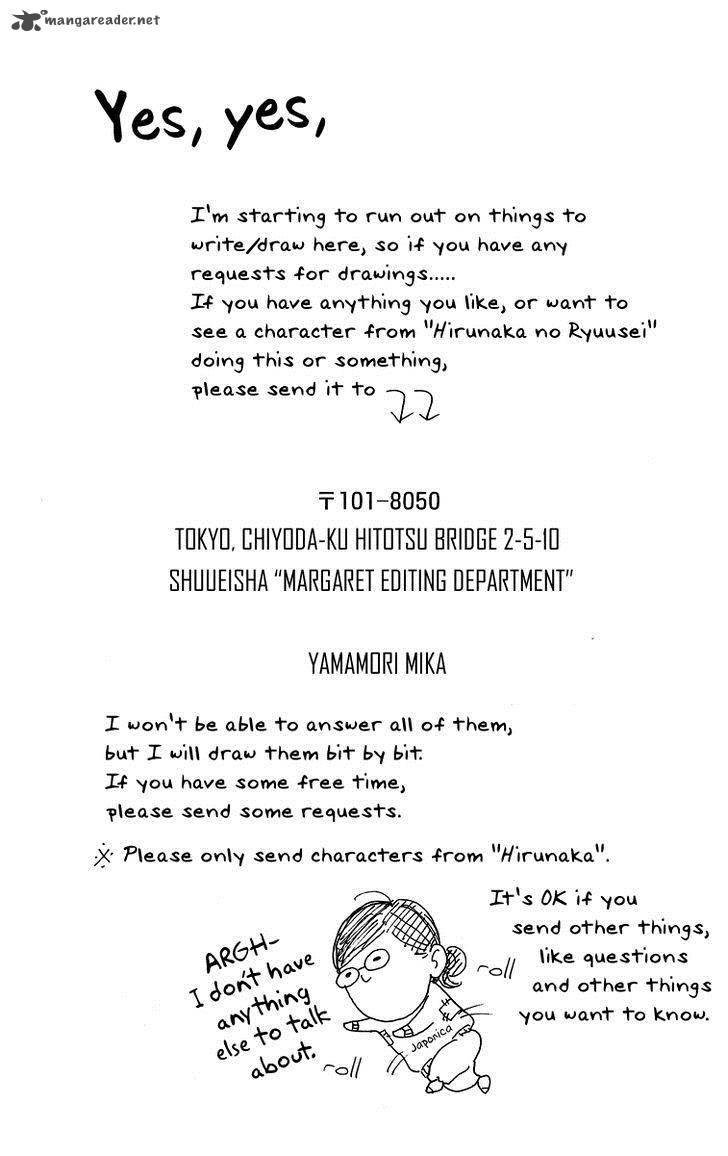 mangareader.net
Yes, yes,
I'm starting to run out on things to
write/draw here, so if you have any
requests for drawings.....
If you have anything you like, or want to
see a character from "Hirunaka no Ryuusei"
doing this or something,
please send it to
〒101-8050
TOKYO, CHIYODA-KU HITOTSU BRIDGE 2-5-10
SHUUEISHA “MARGARET EDITING DEPARTMENT”
YAMAMORI MIKA
I won't be able to answer all of them,
but I will draw them bit by bit.
If you have some free time,
please send some requests.
※ Please only send characters from "Hirunaka".
It's OK if you
send other things,
like questions
and other things
you want to know.
ARGH-
I don't have
anything
else to talk
about.
~oll
~oll
Japonica